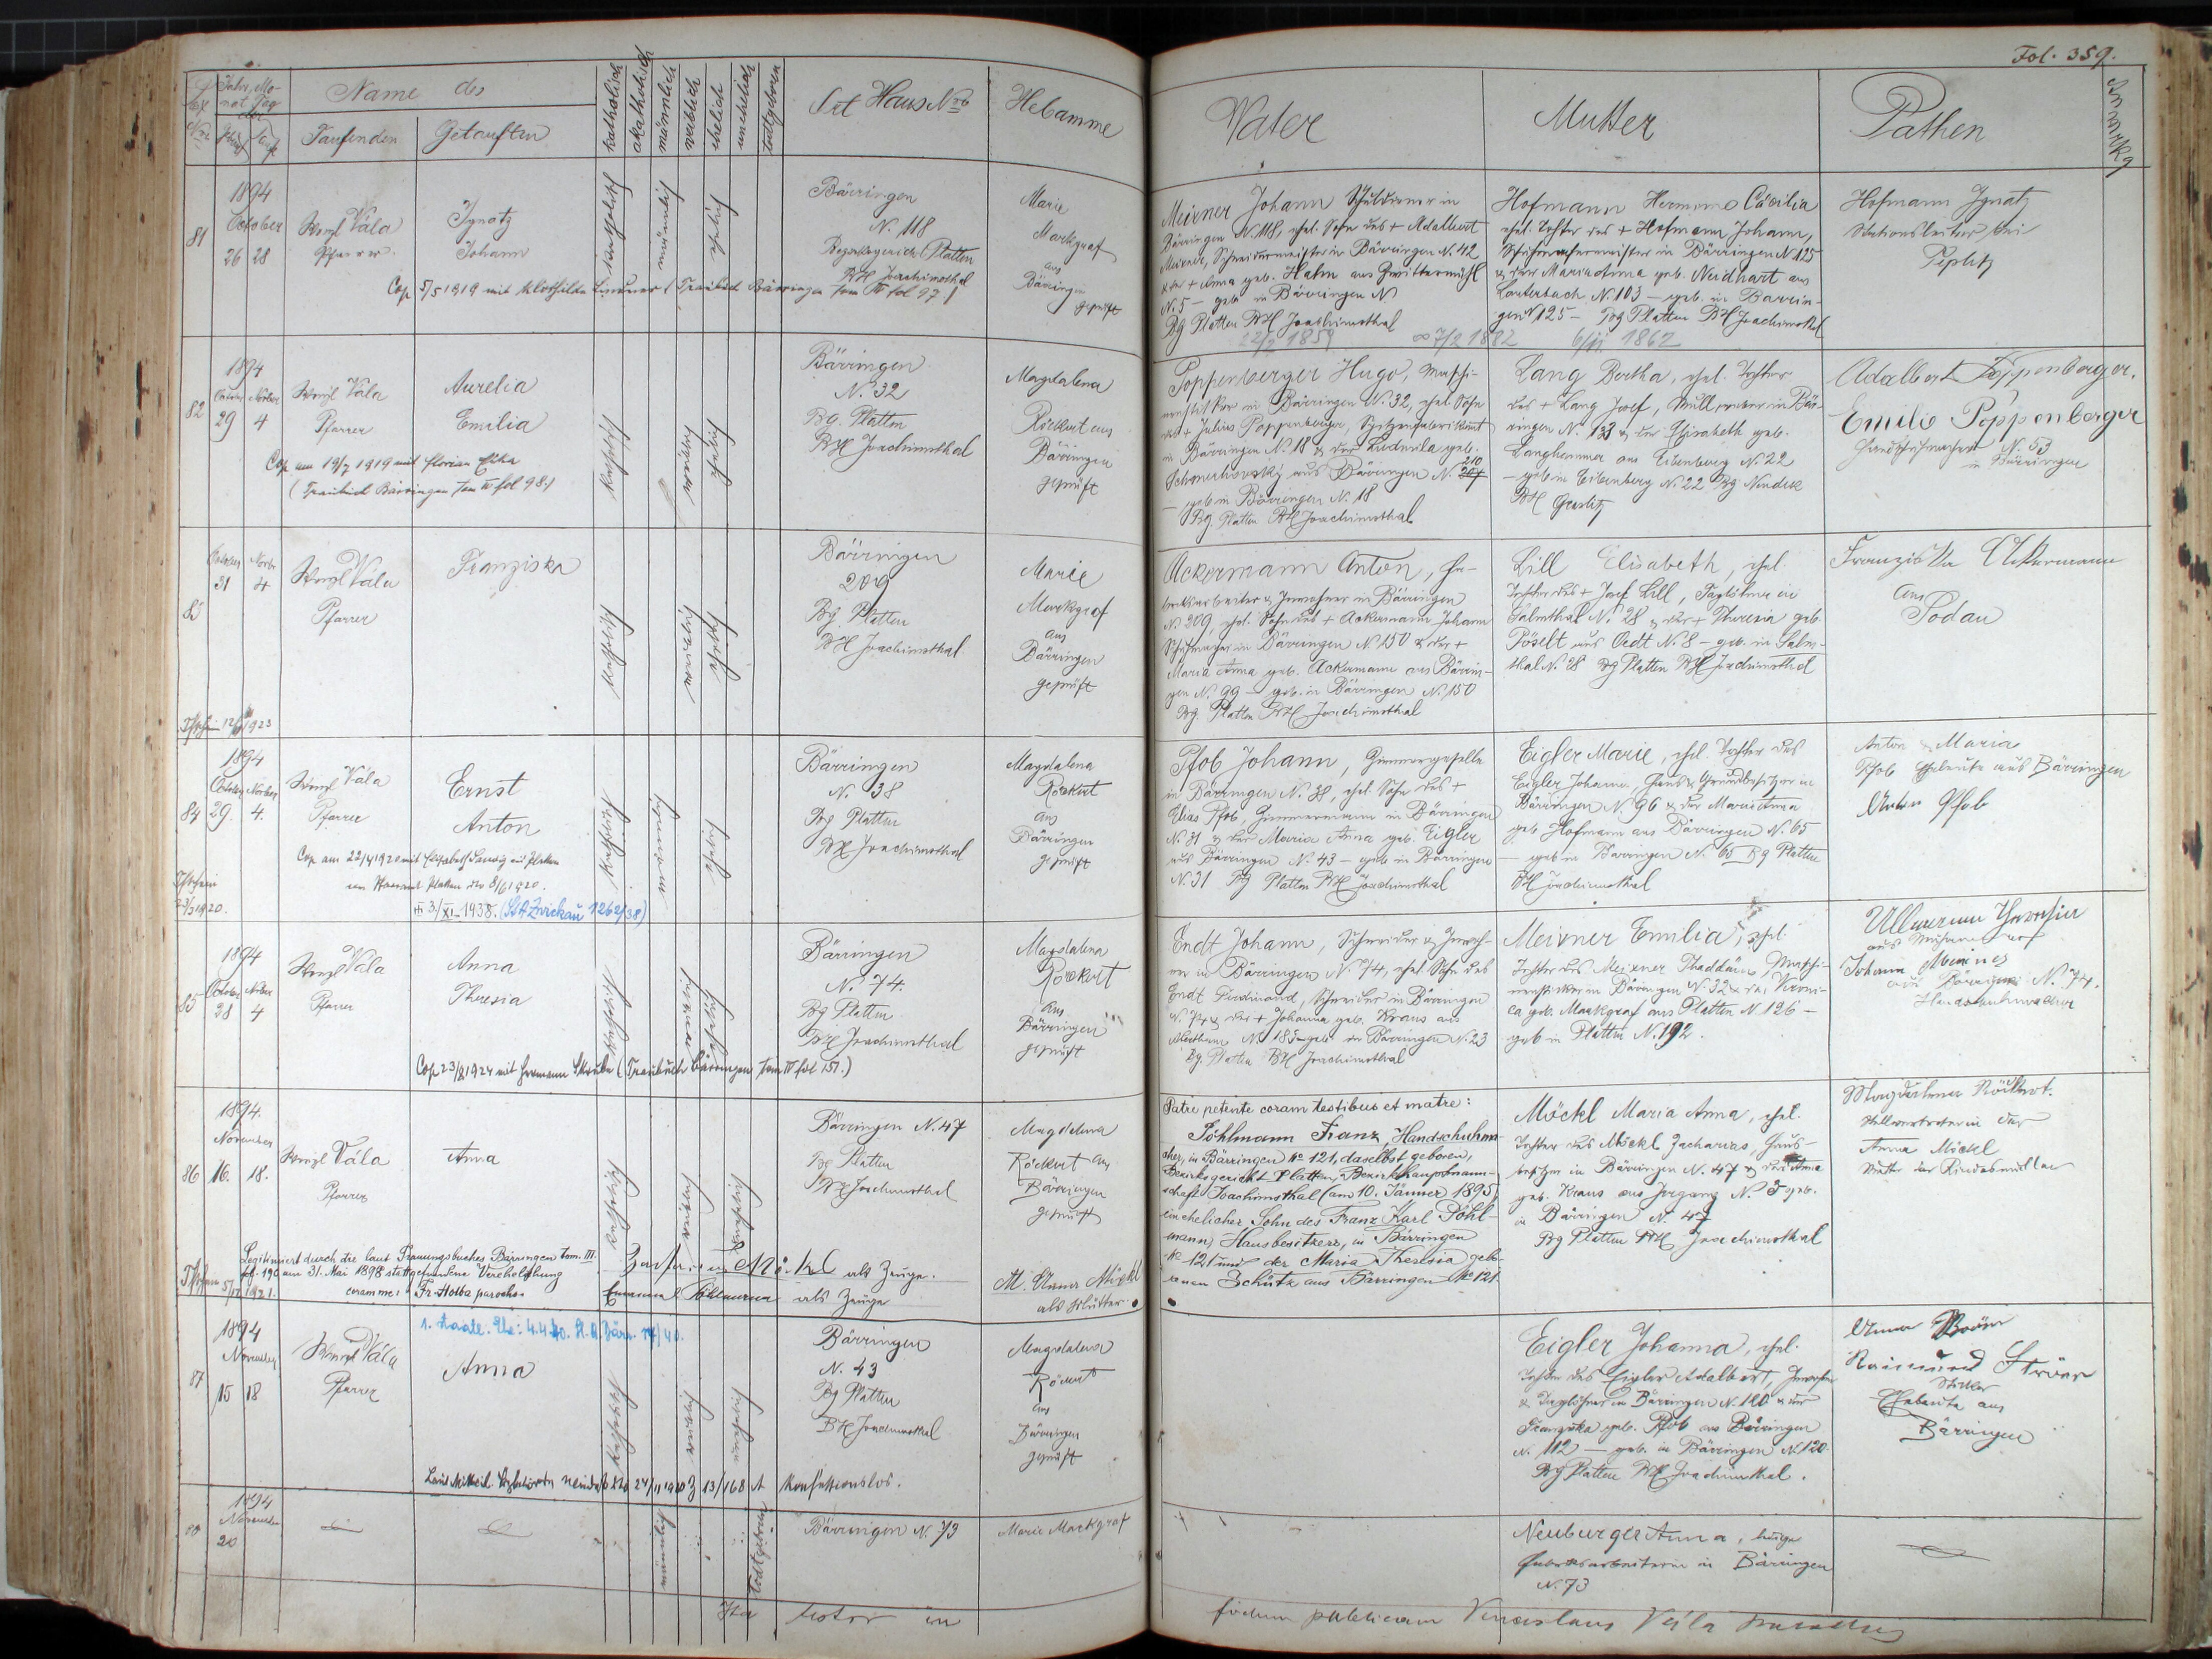 Fol. 359.
Jahr, Monat, Tag der
Name des
Taufenden
Getauften
katholisch
akatholisch
männlich
weiblich
ehelich
unehelich
todtgeboren
Ort Haus Nro
Hebamme
Vater
Mutter
Pathen
81
1894
October
26 28
Wenzl Vála
Pfarrer
Ignatz
Johann
katholisch
männlich
ehelich
Bärringen
N. 118
Bezirksgericht Platten
BH Joachimsthal
Marie
Markgraf
aus
Bärringen
geprüft
Cop 5/5 1919 mit Klothilde Lindner (Traubuch Bärringen tom IV fol 97)
Meixner Johann Schuldiener in
Bärringen N. 118, ehel. Sohn des + Adalbert
Meixner, Schneidermeister in Bärringen N. 42
& der + Anna geb. Hahn aus
N. 5 – geb. in Bärringen N
Bg Platten BH Joachimsthal
22/2 1859
∞ 7/2 1882
Hofmann Hermine Cäcilia
ehel. Tochter des + Hofmann Johann,
Schuhmachermeister in Bärringen N 125
& der Maria Anna geb. Neidhart aus
Lauterbach N. 103 – geb. in Bärrin-
gen N 125 – Bg Platten BH Joachimsthal
1862
Hofmann Ignatz
Stationsleiter bei
Teplitz
82
1894
October Novber
29 4
Wenzl Vála
Pfarrer
Aurelia
Emilia
katholisch
weiblich
ehelich
Bärringen
N. 32
Bg. Platten
BH Joachimsthal
Magdalena
Röckert aus
Bärringen
geprüft
Cop am 19/7 1919 mit Florian
(Traubuch Bärringen tom IV fol 98.)
Poppenberger Hugo, Maschi-
nensticker in Bärringen N. 32, ehel. Sohn
des + Julius Poppenberger, Spitzenfabrikant
in Bärringen N. 18 & der Ludmila geb.
aus Bärringen N. 210
– geb in Bärringen N. 18
Bg. Platten BH Joachimsthal
Lang Bertha, ehel. Tochter
des + Lang Josef, in Bär-
ringen N. 133 & der Elisabeth geb.
Langhammer aus Eibenberg N. 22
– geb in Eibenberg N. 22 Bg Neudek
BH Graslitz
Adalbert Poppenberger.
Emilie Poppenberger
N. 53
in Bärringen
83
October Novbr
31 4
Wenzl Vála
Pfarrer
Franziska
katholisch
weiblich
ehelich
Bärringen
209
Bg. Platten
BH Joachimsthal
Marie
Markgraf
aus
Bärringen
geprüft
1923
Ackermann Anton, Fa-
briksarbeiter & Inwohner in Bärringen
N. 209, ehel. Sohn des + Ackermann Johann
Schuhmacher in Bärringen N. 150 & der +
Maria Anna geb. Ackermann aus Bärrin-
gen N. 99 – geb. in Bärringen N. 150
Bg. Platten BH Joachimsthal
Lill Elisabeth, ehel.
Tochter des + Josef Lill, Taglöhner in
Salmthal N. 28 & der + Theresia geb.
Pöselt aus Oedt N. 8 – geb. in Salm-
thal N. 28 Bg Platten BH Joachimsthal
Franziska Ackermann
aus
Sodau
84
1894
October November
29. 4.
Wenzl Vála
Pfarrer
Ernst
Anton
katholisch
männlich
ehelich
Bärringen
N. 38
Bg Platten
BH Joachimsthal
Magdalena
Röckert
aus
Bärringen
geprüft
Cop am 22/4 1920 mit Elisabeth in Platten
8/6 1920.
1920.
3./XI. 1938. (StA Zwickau 1262/38)
Pfob Johann, Zimmergeselle
in Bärringen N. 38, ehel. Sohn des +
Elias Pfob, Zimmermann in Bärringen
N. 31 & der Maria Anna geb. Eigler
aus Bärringen N. 43 – geb in Bärringen
N. 31 Bg Platten BH Joachimsthal
Eigler Marie, ehel. Tochter des
Eigler Johann, Haus & Grundbesitzer in
Bärringen N 96 & der Maria Anna
geb. Hofmann aus Bärringen N. 65
– geb in Bärringen N. 65 Bg Platten
BH Joachimsthal
Anton & Maria
Pfob Eheleute aus Bärringen
Anton Pfob
85
1894
October Novber
28 4
Wenzl Vála
Pfarrer
Anna
Theresia
katholisch
weiblich
ehelich
Bärringen
N. 74.
Bg Platten
BH Joachimsthal
Magdalena
Röckert
aus
Bärringen
geprüft
Cop 23/8 1924 mit Hermann (Traubuch Bärringen tom IV fol 151.)
Endt Johann, Schneider & Inwoh-
ner in Bärringen N. 74, ehel. Sohn des
Endt Ferdinand, Schneider in Bärringen
N. 74 & der + Johanna geb. Kraus aus
N. 185 – geb in Bärringen N. 23
Bg. Platten BH Joachimsthal
Meixner Emilia, ehel.
Tochter des Meixner Thaddäus, Maschi-
nensticker in Bärringen N. 32 & der Vroni-
ca geb. Markgraf aus Platten N 126 –
geb in Platten N. 192.
Ullmann Theresia
Johann Meixner
aus Bärringen N. 74.
Handschuhmacher
86
1894.
November
16. 18.
Wenzl Vála
Pfarrer
Anna
katholisch
weiblich
unehelich
Bärringen N. 47
Bg Platten
BH Joachimsthal
Magdalena
Röckert aus
Bärringen
geprüft
Legitimiert durch die laut Trauungsbuches Bärringen tom. III.
fol. 190 am 31. Mai 1898 stattgefundene Verehelichung
coram me: Fr. Hotba parocho.
1921.
Möckl als Zeuge.
Pöhlmann als Zeuge
M. Anna Möckl
als Mutter.
Patre petente coram testibus et matre:
Pöhlmann Franz, Handschuhma-
cher, in Bärringen No 121, daselbst geboren,
Bezirksgericht Platten, Bezirkshauptmann-
schaft Joachimsthal (am 10. Jänner 1895)
ein ehelicher Sohn des Franz Karl Pöhl-
mann, Hausbesitzers, in Bärringen
No 121 und der Maria Theresia gebo-
renen Schütz aus Bärringen No 121.
Möckl Maria Anna, ehel.
Tochter des Möckl Zacharias, Haus-
besitzer in Bärringen N. 47 & der Anna
geb. Kraus aus N. 5 geb.
in Bärringen N. 47
Bg Platten BH Joachimsthal
Magdalena Röckert.
Stellvertreterin der
Anna Möckl
Mutter der Kindesmutter
87
1894
November
15 18
1. staatl. Ehe: 4.4.40. St. A. Bärr. 14/40.
Wenzl Vála
Pfarrer
Anna
katholisch
weiblich
unehelich
Bärringen
N. 43
Bg Platten
BH Joachimsthal
Magdalena
Röckert
aus
Bärringen
geprüft
Laut Mitteil. Neudek 13/168 A konfessionslos.
Eigler Johanna, ehel.
Tochter des Eigler Adalbert, Inwohner
& Taglöhner in Bärringen N. 120 & der
Franziska geb. Pfob aus Bärringen
N. 112 – geb. in Bärringen N. 120
Bg Platten BH Joachimsthal.
Anna
Raimund
Sticker
Eheleute aus
Bärringen
1894
November
20
männlich
todtgeboren
Bärringen N. 73
Marie Markgraf
Neuburger Anna, ledige
Fabriksarbeiterin in Bärringen
N. 73
Ita testor in
fidem publicam Venceslaus Vála